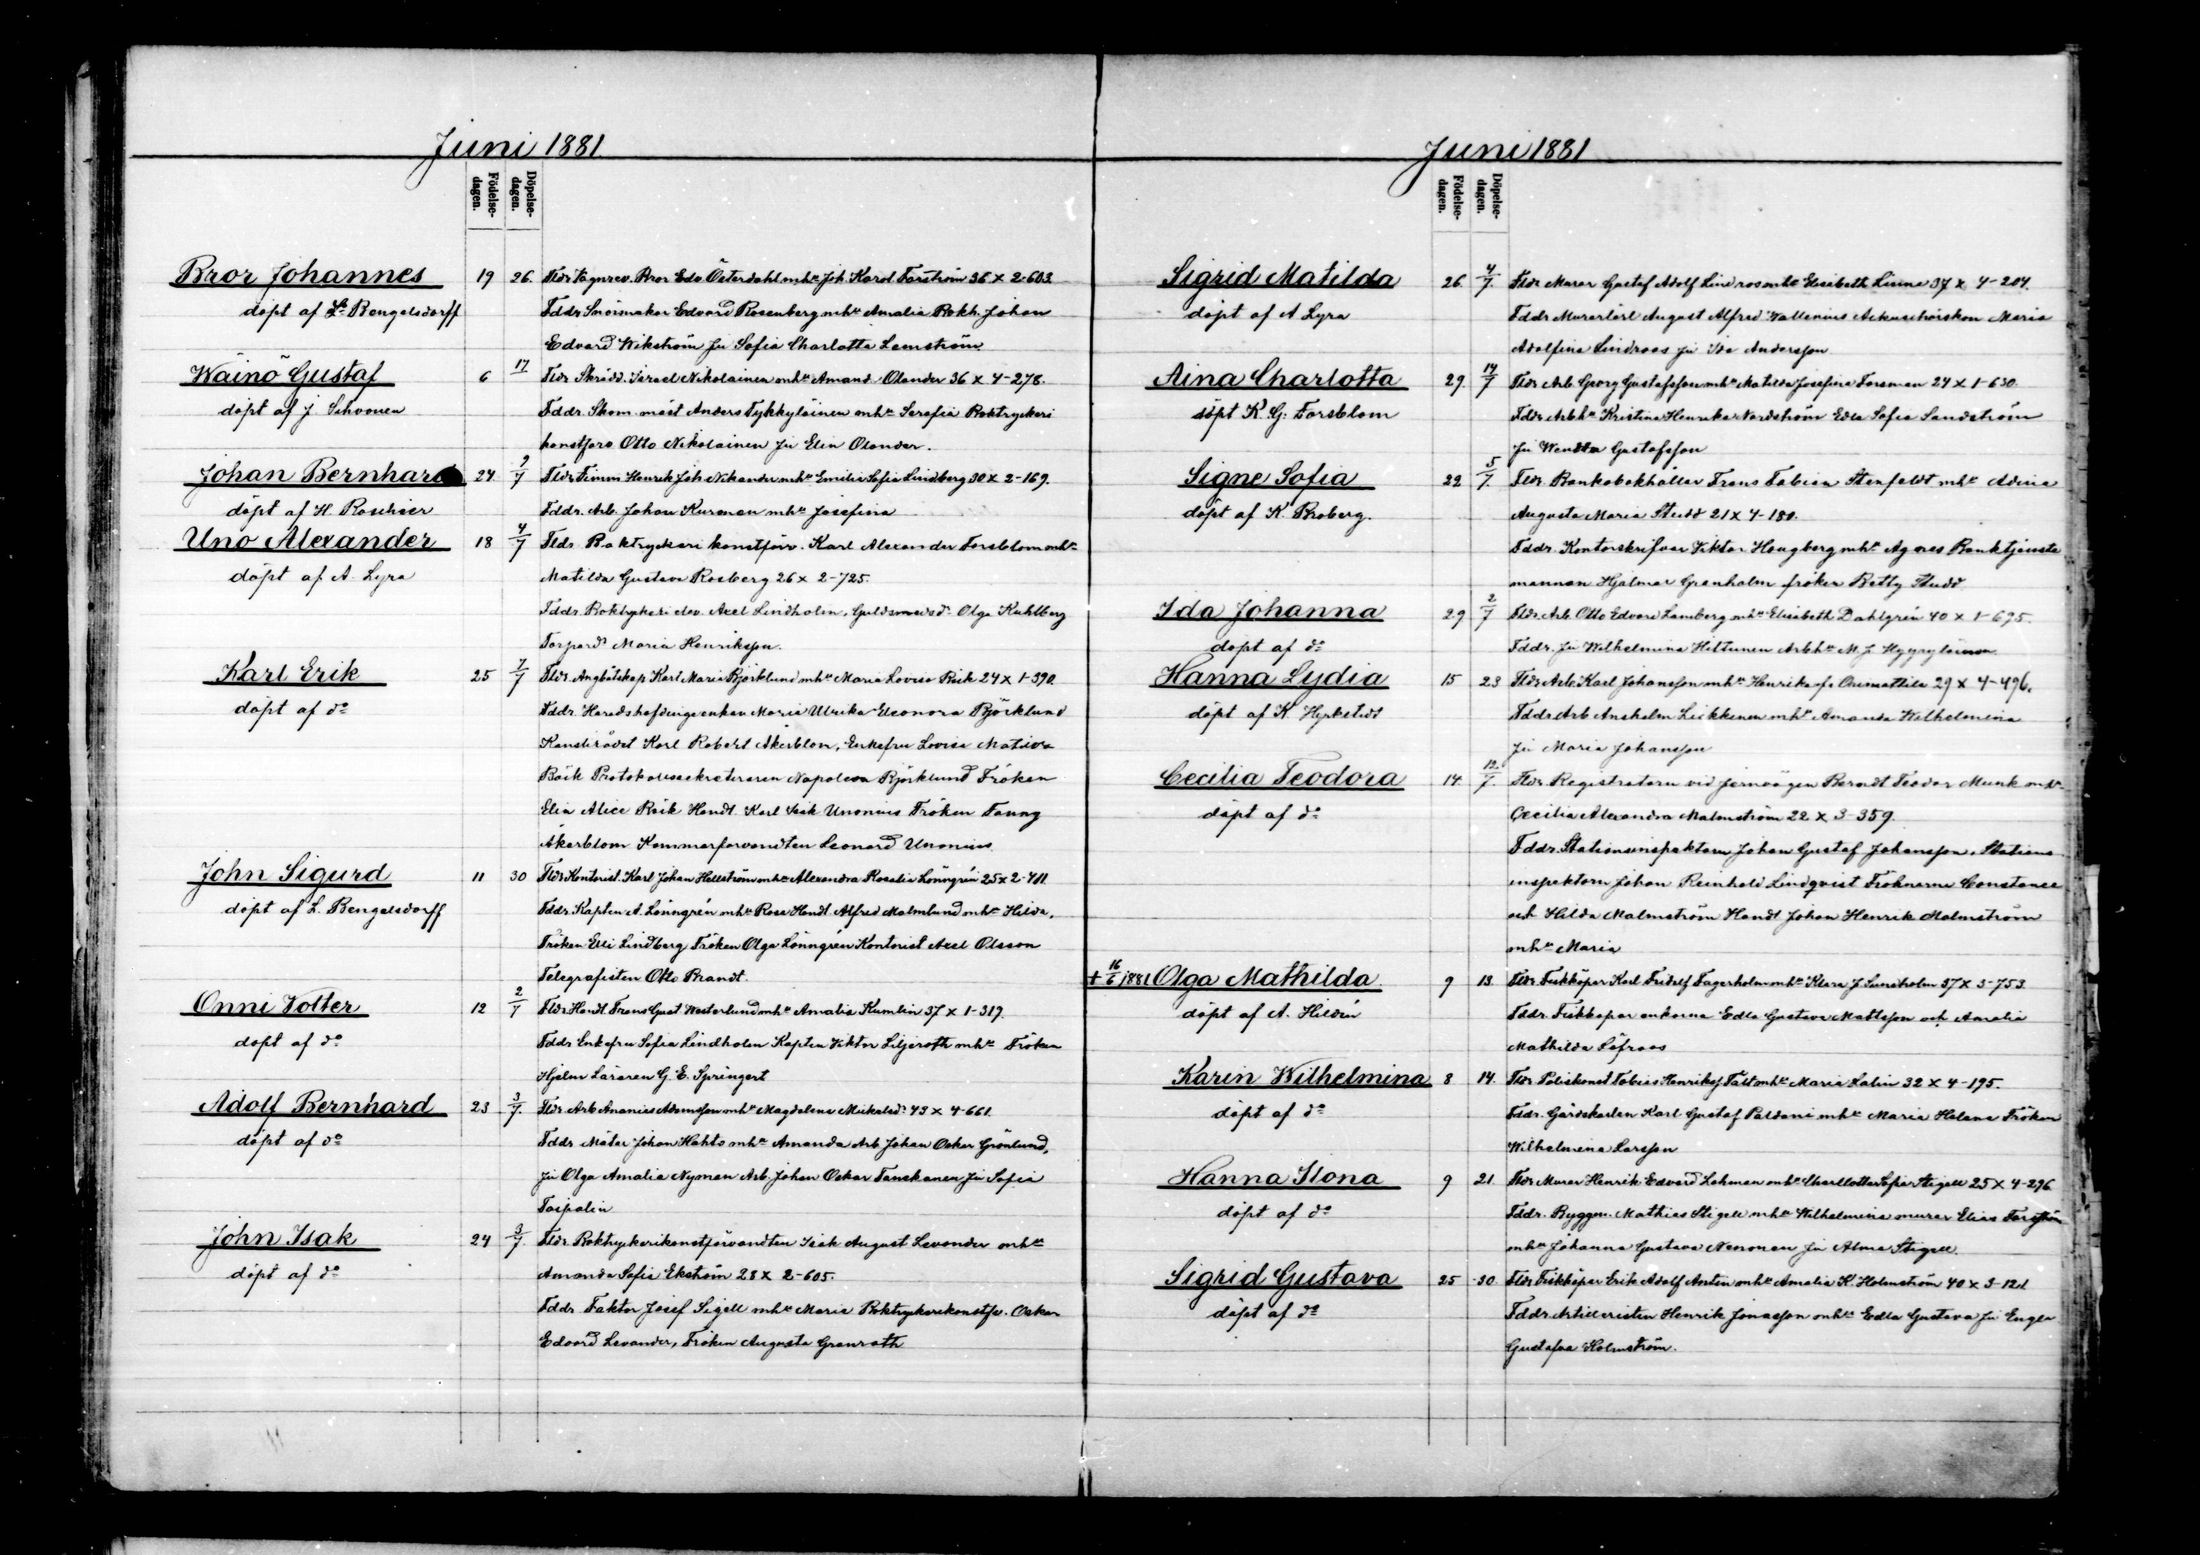 Juni 1881
Födelse-dagen. Döpelse-dagen.
Bror Johannes 19 26. Fldr Vagnrev. Bror Edv. Österdahl mhu Joh. Karol. Forström 36 x 2-603
döpt af L. Bengelsdorff Fddr Snörmakar Edvard Rosenberg mhu Amalia Bokh. Johan
Edvard Wikström Ju Sofia Charlotta Lemström
Wäinö Gustaf 6 17 Fldr Skrädd. Israel Nikolainen mhu Amand. Olander 36 x 4-278.
döpt af J Sihvonen Fddr. Skom. mäst Anders Tykkyläinen mhu Serafia Boktryckeri
konstförv Otto Nikolainen Ju Elin Olander.
Johan Bernhard 24 7/7 Fldr Timm Henrik Joh Nikander mhu Emilia Sofia Lindberg 30 x 2-169.
döpt af H. Roschier Fddr. Arb. Johan Kurman mhu Josefina
Uno Alexander 18 4/7 Fldr. Boktryckeri konstförv. Karl Alexander Forsblom mhu
döpt af A. Lyra Matilda Gustava Rosberg 26 x 2-725.
Fddr. Boktryckeri elev. Axel Lindholm, Guldsmedsd. Olga Kuhlberg
Torpard Maria Henriksson.
Karl Erik 25 7/7 Fldr. Ångbåtskap Karl Maria Björklund mhu Maria Lovisa Bäck 24 x 1-390
döpt af do Fddr. Haradshöfdingeenkan Maria Ulrika Eleonora Björklund
Kanslirådet Karl Robert Åkerblom, Enkefru Lovisa Matilda
Bäck Protokollssekreteraren Napoleon Björklund Fröken
Elin Alice Bäck Handl. Karl Isak Unonius Fröken Fanny
Åkerblom Kammarförvandten Leonard Unonius
John Sigurd 11 30 Fldr Kontorist Karl Johan Hellström mhu Alexandra Rosalia Lönngrén 25 x 2-411
döpt af L. Bengelsdorff Fddr. Kapten A. Lönngrén mhu Rosa Handl Alfred Malmlund mhu Hilda.
Fröken Elli Lindberg Fröken Olga Lönngrén Kontorist Axel Olsson
Telegrafisten Otto Brandt.
Onni Volter 12 2/7 Fldr Handl Frans Gust Westerlund mhu Amalia Kumlin 37 x 1-319.
döpt af do Fddr Enkefru Sofia Lindholm Kapten Viktor Liljeroth mhu Fröken
Hjelm Läraren G. E. Springert
Adolf Bernhard 23 3/7. Fldr. Arb Ananias Adamsson mhu Magdalena Mickelsd. 43 x 4-661.
döpt af do Fddr Målar Johan Hahto mhu Amanda Arb Johan Oskar Grönlund,
Ju Olga Amalia Nyman Arb. Johan Oskar Tanskanen Ju Sofia
Taipalin
John Isak 24 3/7. Fldr. Boktryckerikonstförvandten Isak August Levander mhu
döpt af do Amanda Sofia Ekström 28 x 2-605.
Fddr. Faktor Josef Sigell mhu Maria Boktryckerikonstfv. Oskar
Edvard Levander, Fröken Augusta Granroth
Juni 1881
Födelse-dagen. Döpelse-dagen.
Sigrid Matilda 26 4/7 Fldr Murar Gustaf Adolf Lindroos mhu Elisabeth Linna 37 x 4-204.
döpt af A Lyra Fddr Murarlärl August Alfred Wallenius Maria
Adolfina Lindroos Ju Ida Andersson
Aina Charlotta 29 14/7 Fldr Arb. Georg Gustafsson mhu Matilda Josefina Forsman 24 x 1-630.
döpt K. G. Forsblom Fddr. Arbhu Kristina Henrika Nordström Edla Sofia Sandström
Ju Wendla Gustafsson
Signe Sofia 22 5/7. Fldr. Bankobokhållar Frans Fabian Stenfeldt mhu Adina
döpt af K. Broberg. Augusta Maria Studd 21 x 4-180.
Fddr. Kontorskrifvar Viktor Hougberg mhu Agnes Banktjenste
mannen Hjalmar Granholm fröken Betty Studd
Ida Johanna 29 2/7 Fldr. Arb. Otto Edvard Lamberg mhu Elisabeth Dahlgrén 40 x 1-695.
döpt af do Fddr. Ju Wilhelmina Hiltunen Arbhu M. J. Hyyryläinen
Hanna Lydia 15 23 Fldr Arb. Karl Johansson mhu Henrika f. Orimattila 29 x 4-496.
döpt af K. Hyrkstedt Fddr. Arb Anshelm Leikkinen mhu Amanda Wilhelmina
Ju Maria Johansson
Cecilia Teodora 14 12/7. Fldr. Registratorn vid jernvägen Berndt Teodor Munk mhu
döpt af do Cecilia Alexandra Malmström 22 x 3-359.
Fddr. Stationsinspektorn Johan Gustaf Johansson, Stations
inspektorn Johan Reinhold Lindqvist Fröknarna Constance
och Hilda Malmström Handl Johan Henrik Malmström
mhu Maria
+ 16/6 1881 Olga Mathilda 9 13 Fldr. Fiskköpar Karl Fridolf Fagerholm mhu Klara J Sundholm 37 x 3-753.
döpt af A. Hildén Fddr. Fiskköpar enkorna Edla Gustava Mattsson och Amalia
Mathilda Löfroos
Karin Wilhelmina 8 14. Fldr Poliskonst Tobias Henriksf. Fält mhu Maria Lalin 32 x 4-195.
döpt af do Fddr. Gårdskarlen Karl Gustaf Paldani mhu Maria Helena Fröken
Wilhelmina Larsson
Hanna Ilona 9 21. Fldr Murar Henrik Edvard Lehman mhu Charlotta Sofia Stigell 25 x 4-296
döpt af do Fddr. Byggm. Mathias Stigell mhu Wilhelmina murar Elias Forsström
mhu Johanna Gustava Nenonen Ju Alma Stigell
Sigrid Gustava 25 30 Fldr Fiskköpar Erik Adolf Antin mhu Amalia K. Holmström 40 x 3-121.
döpt af do Fddr Artilleristen Henrik Jonasson mhu Edla Gustava Ju Eugen
Gustafva Holmström.